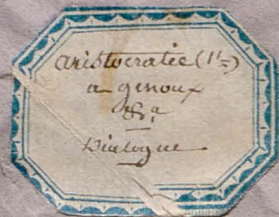 aristocratie (l')
a genoux
Dialogue